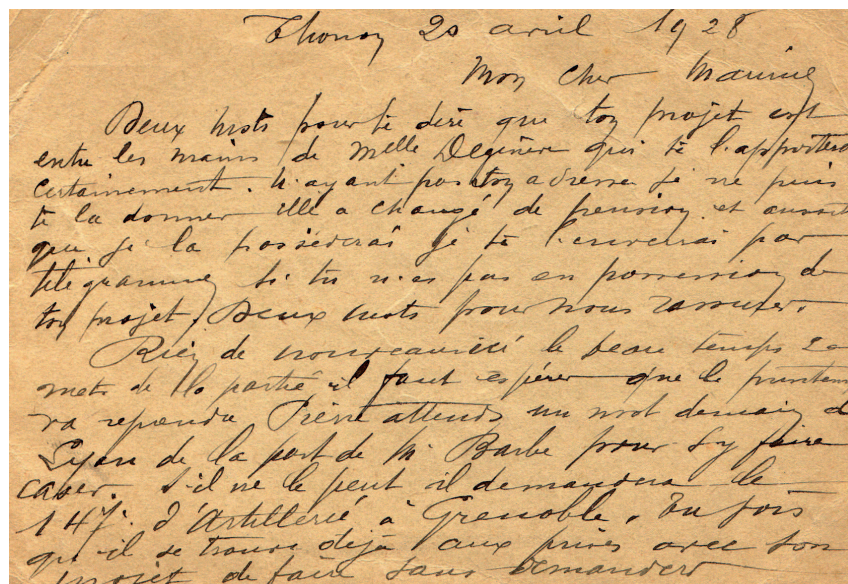 Thonon 20 avril 1928
Mon cher Maurice
Deux mots pour te dire que ton projet est
entre les mains de Melle Deginère qui te l'apportera
certainement. N'ayant pas ton adresse je ne puis
te la donner elle a changé de pension et aussit
que je la possèderai je te l'enverrai par
télégramme si tu n'es pas en possession de
ton projet. Deux mots pour nous rassurer.
Rien de nouveau ici le beau temps se
mets de la partie il faut espérer que le printem
va reprendre Pierre attends un mot demain de
Lyon de la part de M. Barbe pour s'y faire
caser. S'il ne le peut il demandera le
147e d'Artillerie à Grenoble. Tu vois
qu'il se trouve déjà aux prises avec son
projet de faire sans demander